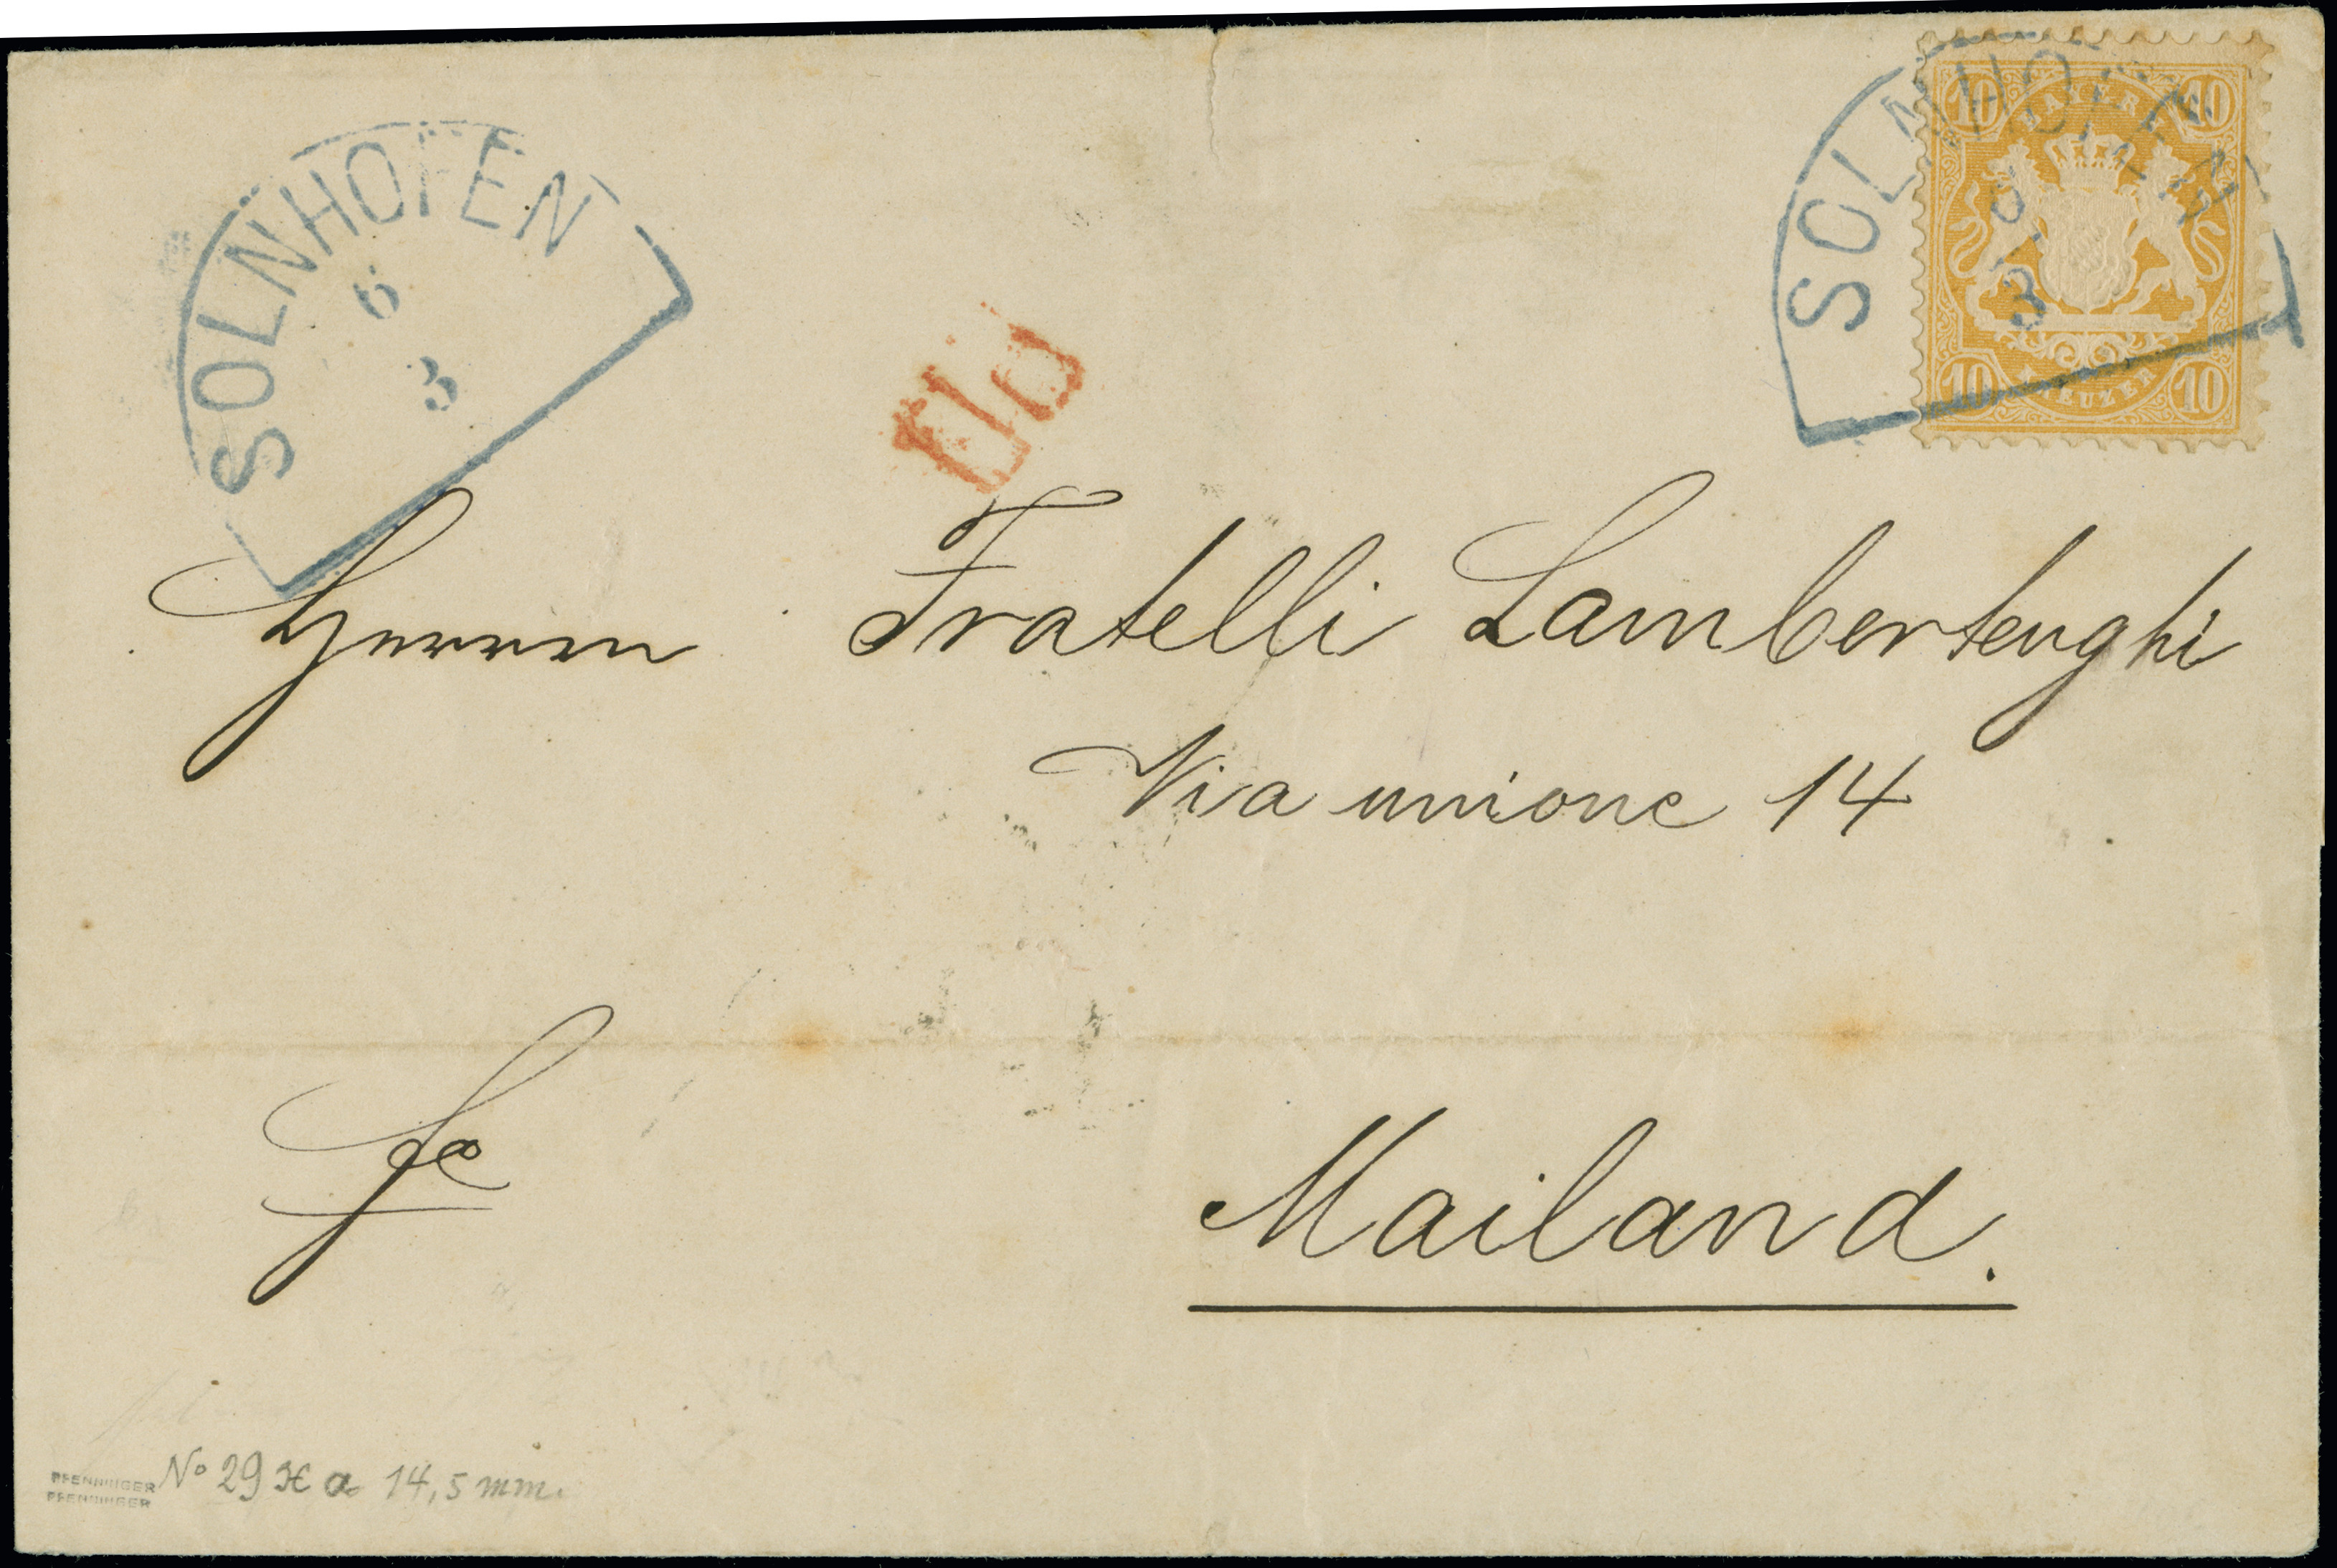 SOLNHOFEN
6
3
SOLNHOFEN
6
3
10 BAYERN 10
10 KREUZER 10
P.D.
Herren Fratelli Lambertenghi
Via unione 14
Mailand.
PFENNINGER
PFENNINGER
No 29 X a 14,5 mm.